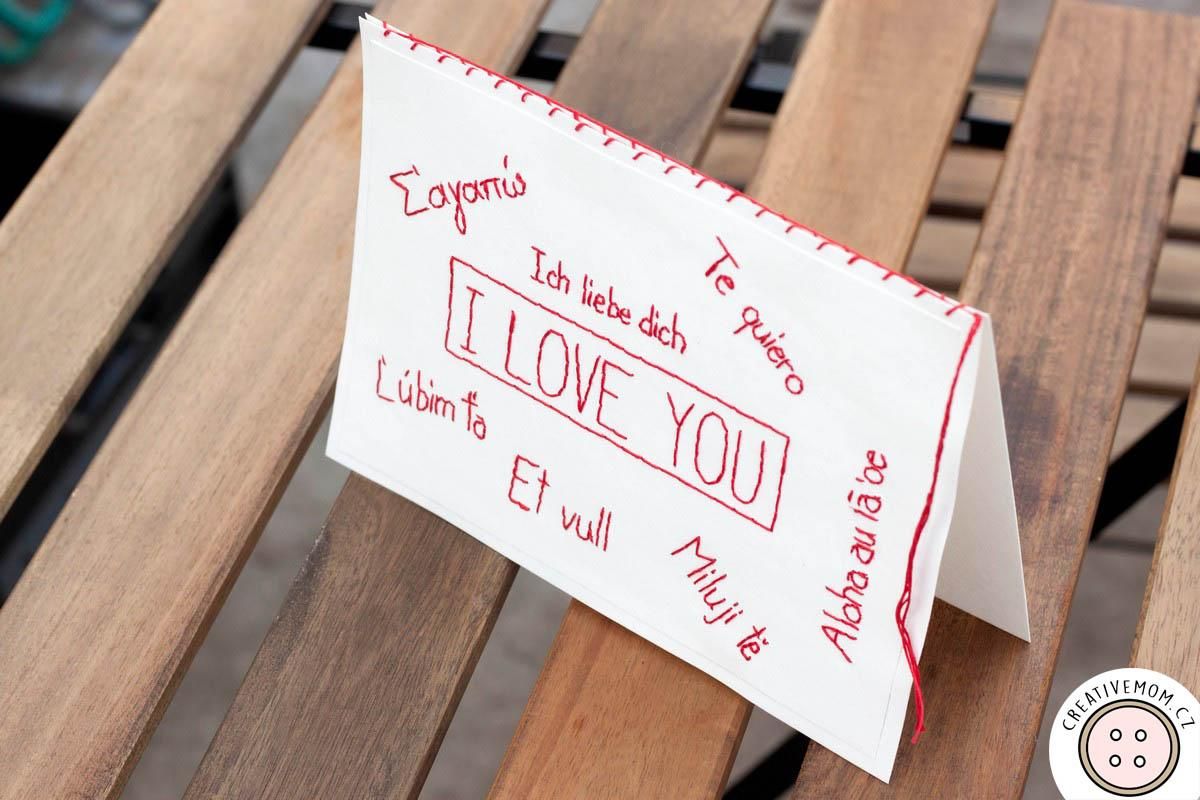 Σ'αγαπώ
Ich liebe dich
Te quiero
I LOVE YOU
Ľúbim ťa
Et vull
Miluji tě
Aloha au iā 'oe
CREATIVEMOM.CZ